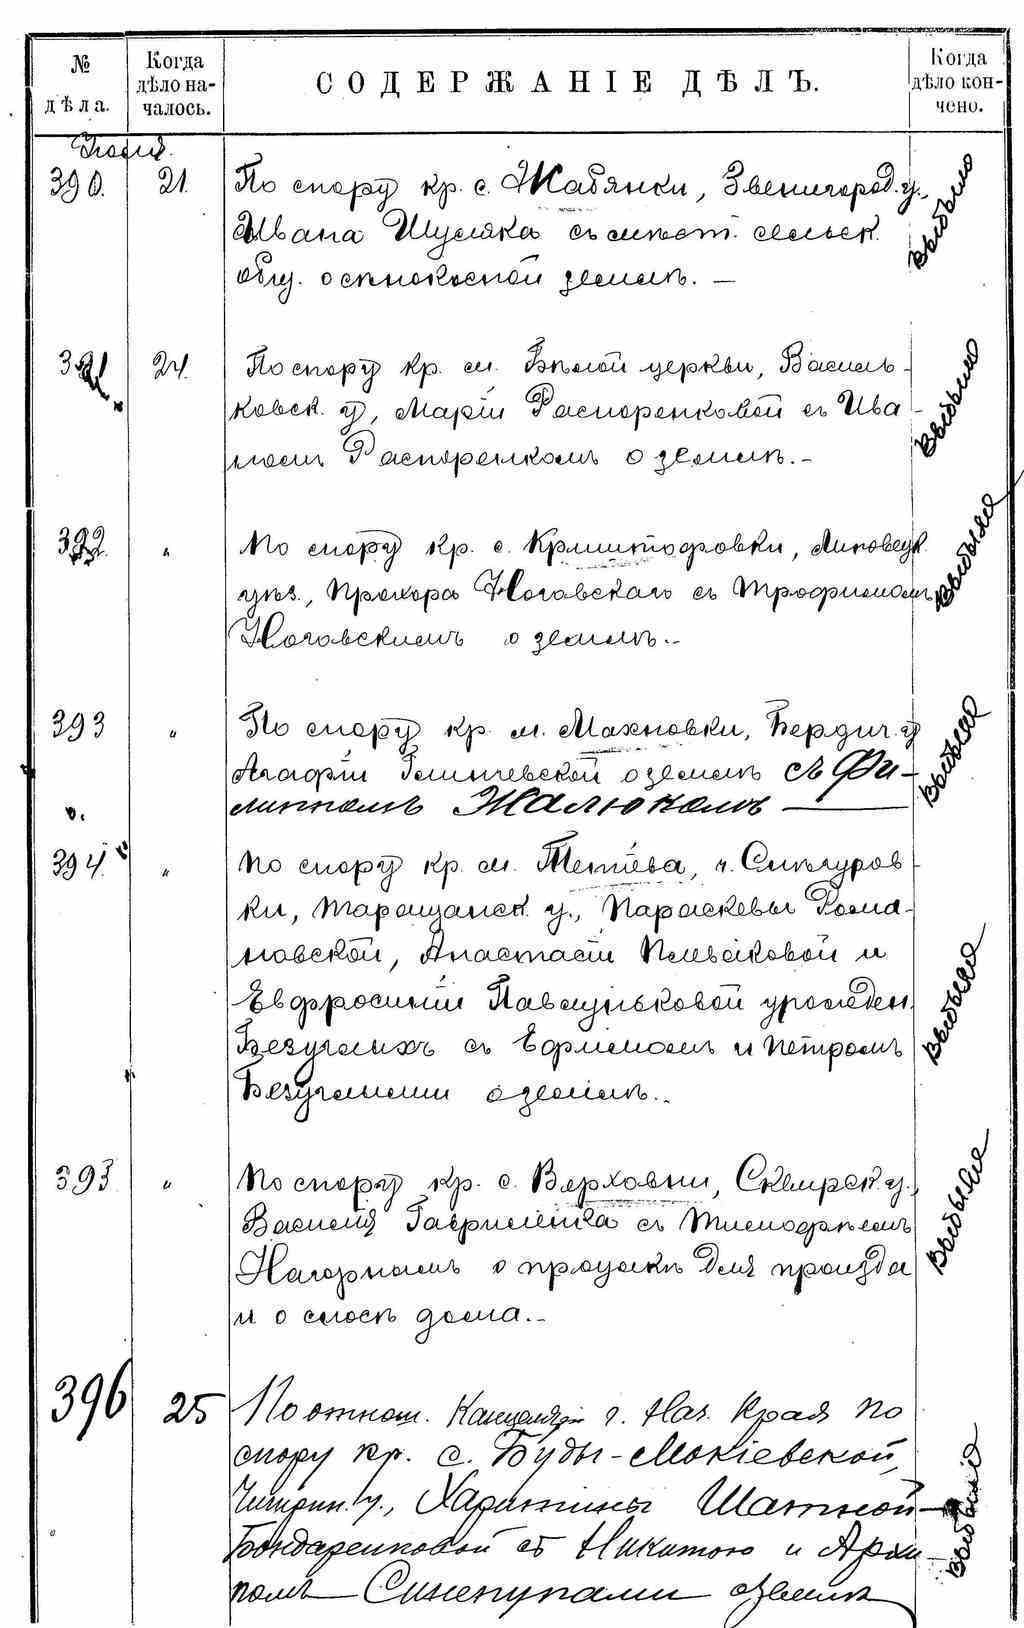 № дѣла.
Когда дѣло началось.
СОДЕРЖАНІЕ ДѢЛЪ.
Когда дѣло кончено.
Іюля.
390. 21. По спору кр. с. Жабянки, Звенигород. у.,
Ивана Шуляка съ мѣст. сельск.
общ. о сѣнокосной землѣ. —
выбыло
391 24. По спору кр. м. Бѣлой церкви, Василь-
ковск. у, Маріи Распоренковой съ Ива-
номъ Распоренкомъ о землѣ. —
выбыло
392. " По спору кр. с. Криштофовки, Липовецк.
уѣз., Прохора Ноговскаго съ Трофимомъ
Ноговскимъ о землѣ. —
выбыла
393 " По спору кр. м. Махновки, Бердич. у
Агафіи о землѣ съ Фи-
липпомъ Жалюкомъ —
выбыла
394. " По спору кр. м. Тетіева, ч. Снѣгуров-
ки, Таращанск. у., Параскевы Рома-
новской, Анастасіи и
Евфросиніи урожден.
Безуглыхъ съ Ефимомъ и Петромъ
Безуглыми о землѣ. —
выбыла
393 " По спору кр. с. Верховни, Сквирск. у.,
Василія Гавриленка съ Тимофѣемъ
Нагорнымъ о проулкѣ для проѣзда
и о сносѣ дома. —
выбыла
396 25 По отнош. Канцеляріи г. Нач. Края по
спору кр. с. Буды-Мокіевской,
Чигрин. у., Харитины Шатной-
Бондаренковой съ Никитою и Архи-
помъ Синепупами о землѣ
выбыла